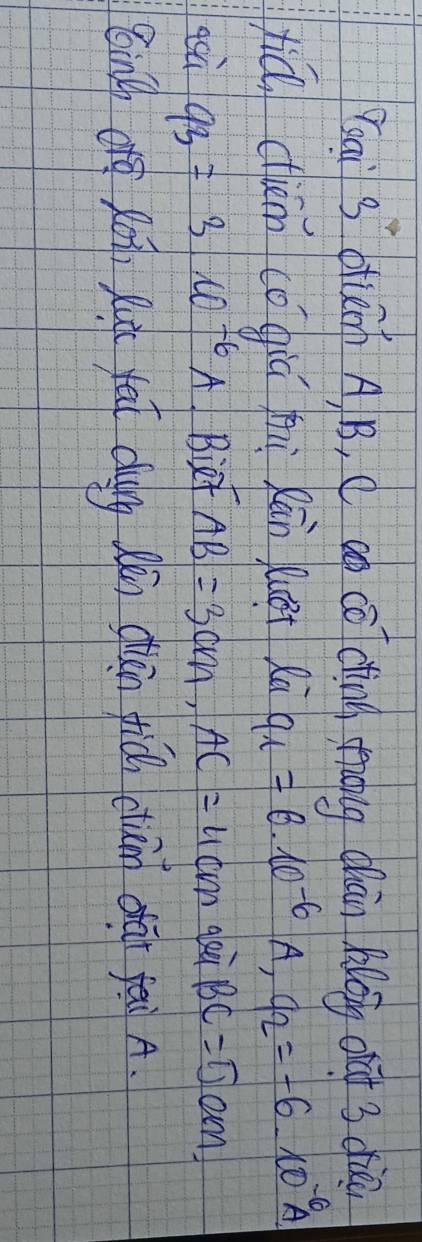 Tại 3 điểm A, B, C cố định trong chân không đặt 3 điện
tích điểm có giá trị lần lượt là q₁ = 6.10⁻⁶ A, q₂ = -6.10⁻⁶ A
và q₃ = 3.10⁻⁶ A. Biết AB = 3cm, AC = 4cm và BC = 5cm.
Tính độ lớn lực tác dụng lên điện tích điểm đặt tại A.